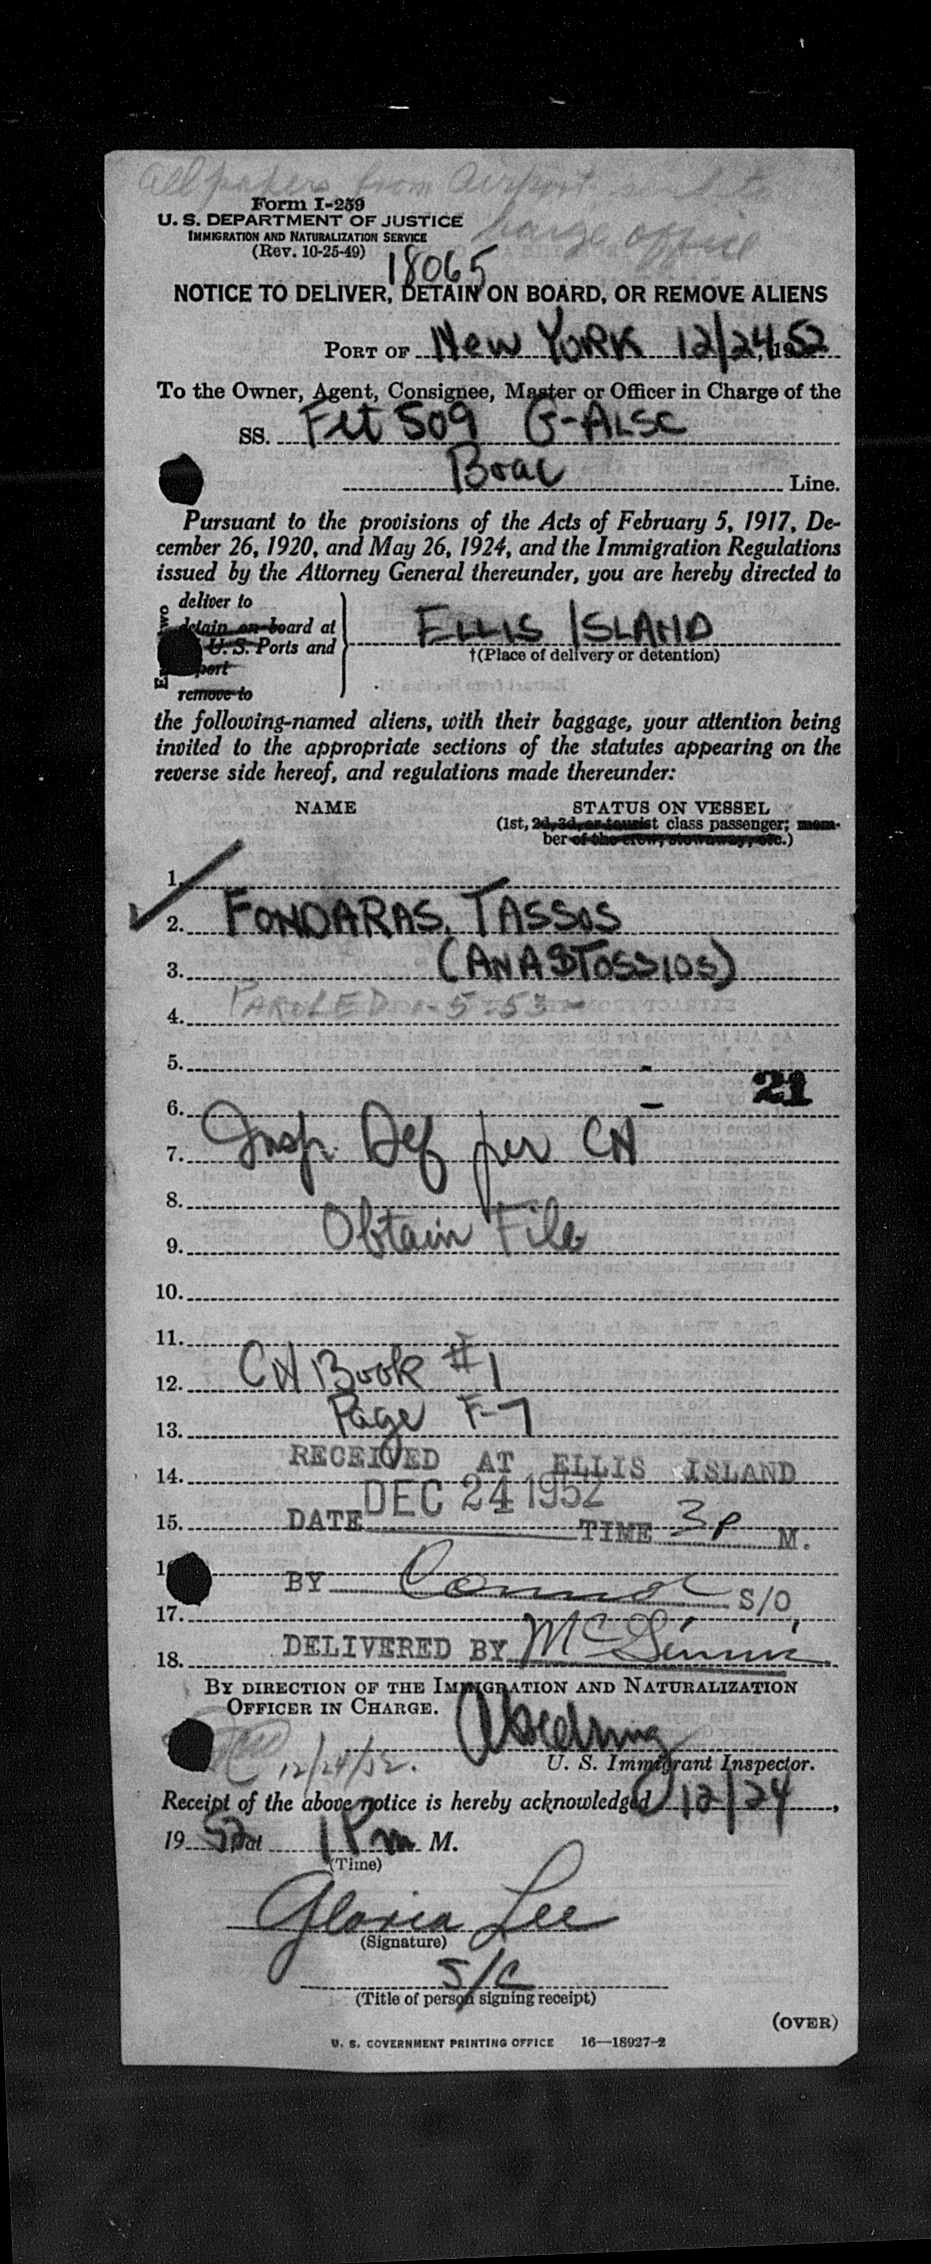 All papers from Airport sent to
barge office
Form I-259
U. S. DEPARTMENT OF JUSTICE
IMMIGRATION AND NATURALIZATION SERVICE
(Rev. 10-25-49)
18065
NOTICE TO DELIVER, DETAIN ON BOARD, OR REMOVE ALIENS
PORT OF New YORK 12/24, 1952
To the Owner, Agent, Consignee, Master or Officer in Charge of the
SS. Flt 509 G-ALSC
Boac Line.
Pursuant to the provisions of the Acts of February 5, 1917, De-
cember 26, 1920, and May 26, 1924, and the Immigration Regulations
issued by the Attorney General thereunder, you are hereby directed to
deliver to
detain on board at
U. S. Ports and
remove to
ELLIS ISLAND
†(Place of delivery or detention)
the following-named aliens, with their baggage, your attention being
invited to the appropriate sections of the statutes appearing on the
reverse side hereof, and regulations made thereunder:
NAME STATUS ON VESSEL
(1st, 2d, 3d, or tourist class passenger; mem-
ber of the crew, stowaway, etc.)
1.
2. FONDARAS, TASSOS
3. (ANASTOSSIOS)
4. PAROLED 1-5-53
5.
21
6.
7. Insp. Def per CH
8.
9. Obtain File
10.
11.
12. CH Book #1
13. Page F-7
RECEIVED AT ELLIS ISLAND
14.
15. DATE DEC 24 1952 TIME 3 P M.
BY Connor S/O
17.
18. DELIVERED BY McGinnis
BY DIRECTION OF THE IMMIGRATION AND NATURALIZATION
OFFICER IN CHARGE.
12/24/52.
U. S. Immigrant Inspector.
Receipt of the above notice is hereby acknowledged 12/24,
19 52, at 1 Pm M.
(Time)
Gloria Lee
(Signature)
S/C
(Title of person signing receipt)
(OVER)
U. S. GOVERNMENT PRINTING OFFICE 16—18927-2